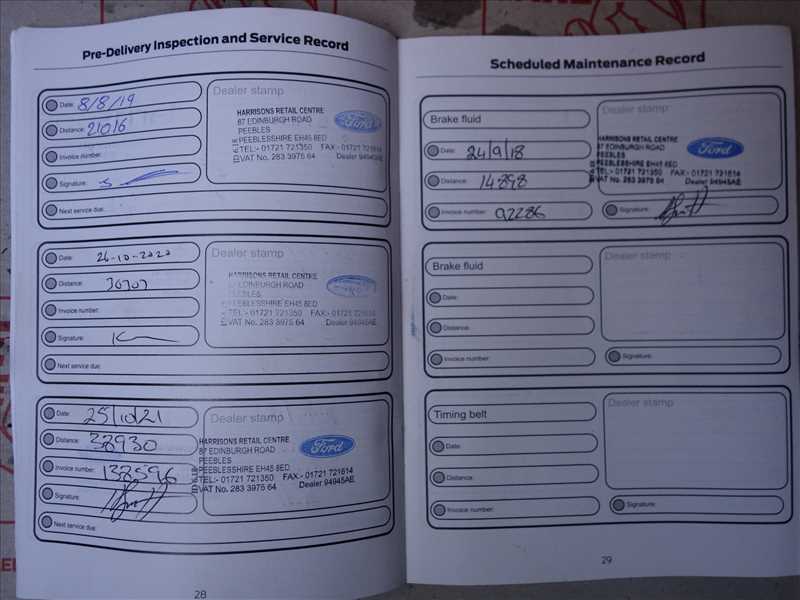 Pre-Delivery Inspection and Service Record
Date: 8/8/19
Distance: 21016
Invoice number:
Signature:
Next service due:
Dealer stamp
HARRISONS RETAIL CENTRE
87 EDINBURGH ROAD
PEEBLES
PEEBLESSHIRE EH45 8ED
TEL:- 01721 721350 FAX - 01721 721614
VAT No. 283 3975 64 Dealer 94945AE
Ford
Date: 26-10-2020
Distance:
Invoice number:
Signature:
Next service due:
Dealer stamp
HARRISONS RETAIL CENTRE
87 EDINBURGH ROAD
PEEBLES
PEEBLESSHIRE EH45 8ED
TEL - 01721 721350 FAX - 01721 721614
VAT No. 283 3975 64 Dealer 94945AE
Ford
Date: 25/10/21
Distance: 38930
Invoice number: 138596
Signature:
Next service due:
Dealer stamp
HARRISONS RETAIL CENTRE
87 EDINBURGH ROAD
PEEBLES
PEEBLESSHIRE EH45 8ED
TEL:- 01721 721350 FAX - 01721 721614
VAT No. 283 3975 64 Dealer 94945AE
Ford
28
Scheduled Maintenance Record
Brake fluid
Date: 24/9/18
Distance: 14898
Invoice number: 92286
Dealer stamp
HARRISONS RETAIL CENTRE
87 EDINBURGH ROAD
PEEBLES
PEEBLESSHIRE EH45 8ED
TEL:- 01721 721350 FAX - 01721 721614
VAT No. 283 3975 64 Dealer 94945AE
Ford
Signature:
Brake fluid
Date:
Distance:
Invoice number:
Dealer stamp
Signature:
Timing belt
Date:
Distance:
Invoice number:
Dealer stamp
Signature:
29